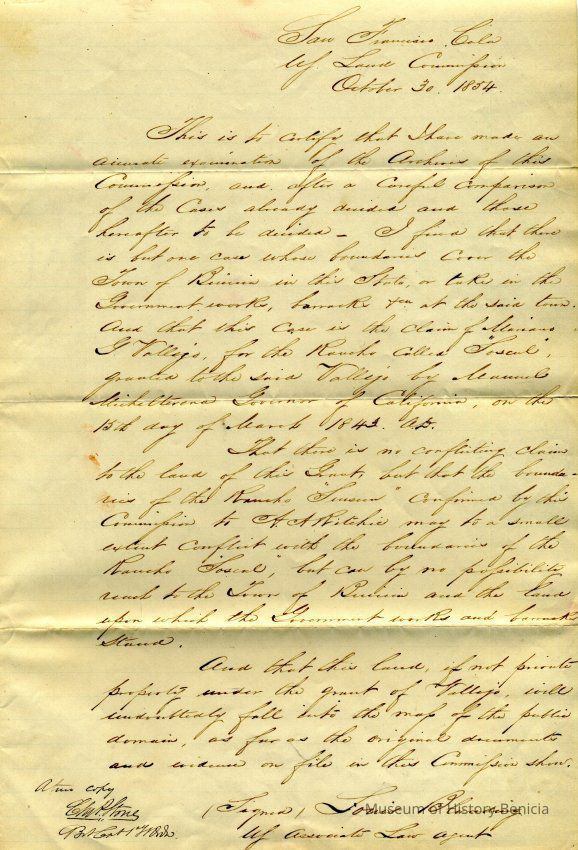 San Francisco, Cala
US. Land Commission
October 30. 1854.
This is to certify that I have made an
accurate examination of the Archives of this
Commission, and after a careful comparison
of the Cases already decided and those
hereafter to be decided - I find that there
is but one case whose boundaries cover the
Town of Benicia in this State, or take in the
Government works, barracks &ca at the said town.
And that this Case is the claim of Mariano
G Vallejo, for the Rancho called "Soscol",
granted to the said Vallejo by Manuel
Micheltorena Governor of California, on the
15th day of March 1843. AD.
That there is no conflicting claim
to the land of this Grant, but that the bounda-
ries of the Rancho "Suisun" Confirmed by this
Commission to A. A Ritchie may to a small
extent Conflict with the boundaries of the
Rancho "Soscol", but can by no possibility
reach to the Town of Benicia and the land
upon which the Government works and barracks
Stand.
And that this land, if not private
property under the grant of Vallejo, will
undoubtedly fall into the mass of the public
domain, as far as the original documents
and evidence on file in this Commission show.
(Signed) Louis
US Associate Law Agent
A true copy
Chs. P. Stone
Bvt Capt
Museum of History Benicia